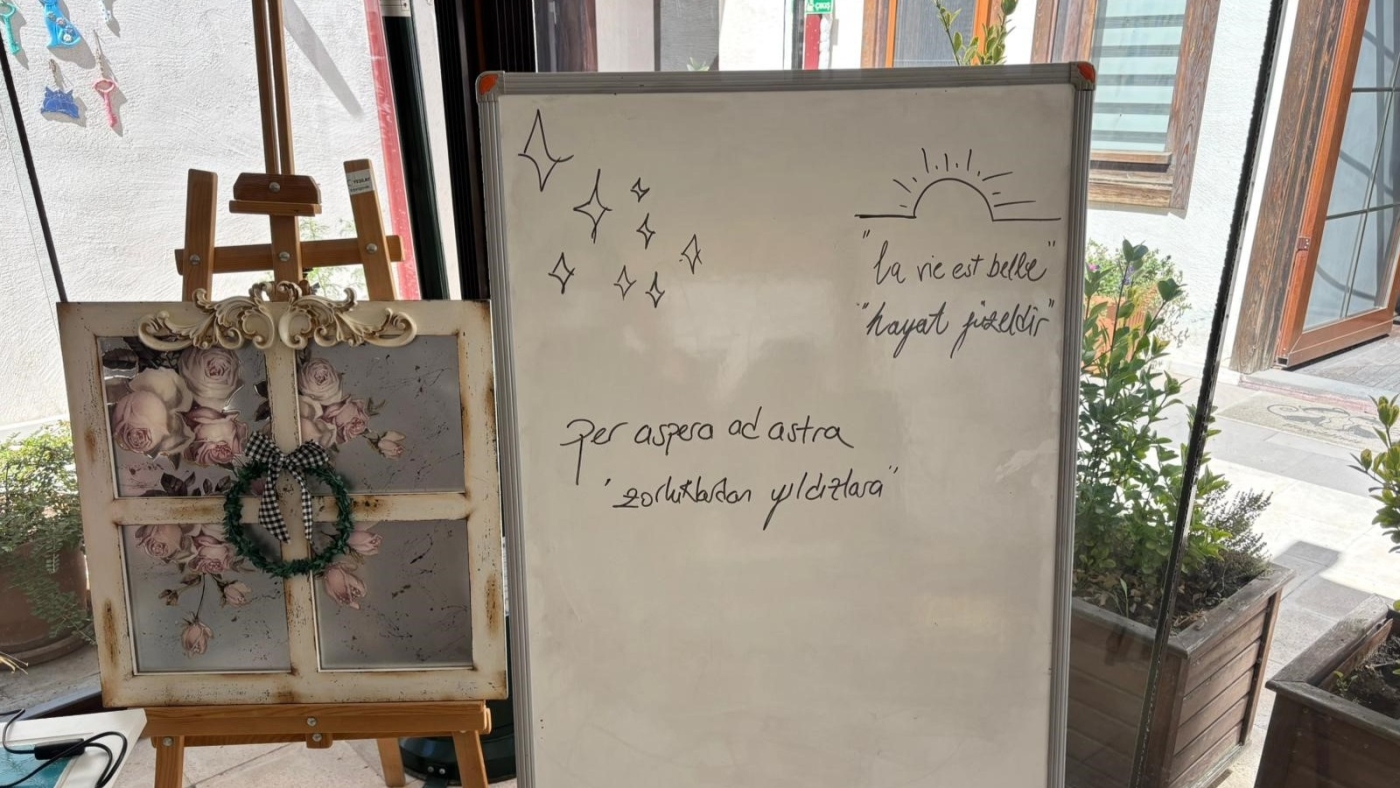 "la vie est belle"
"hayat güzeldir"
Per aspera ad astra
"zorluklardan yıldızlara"